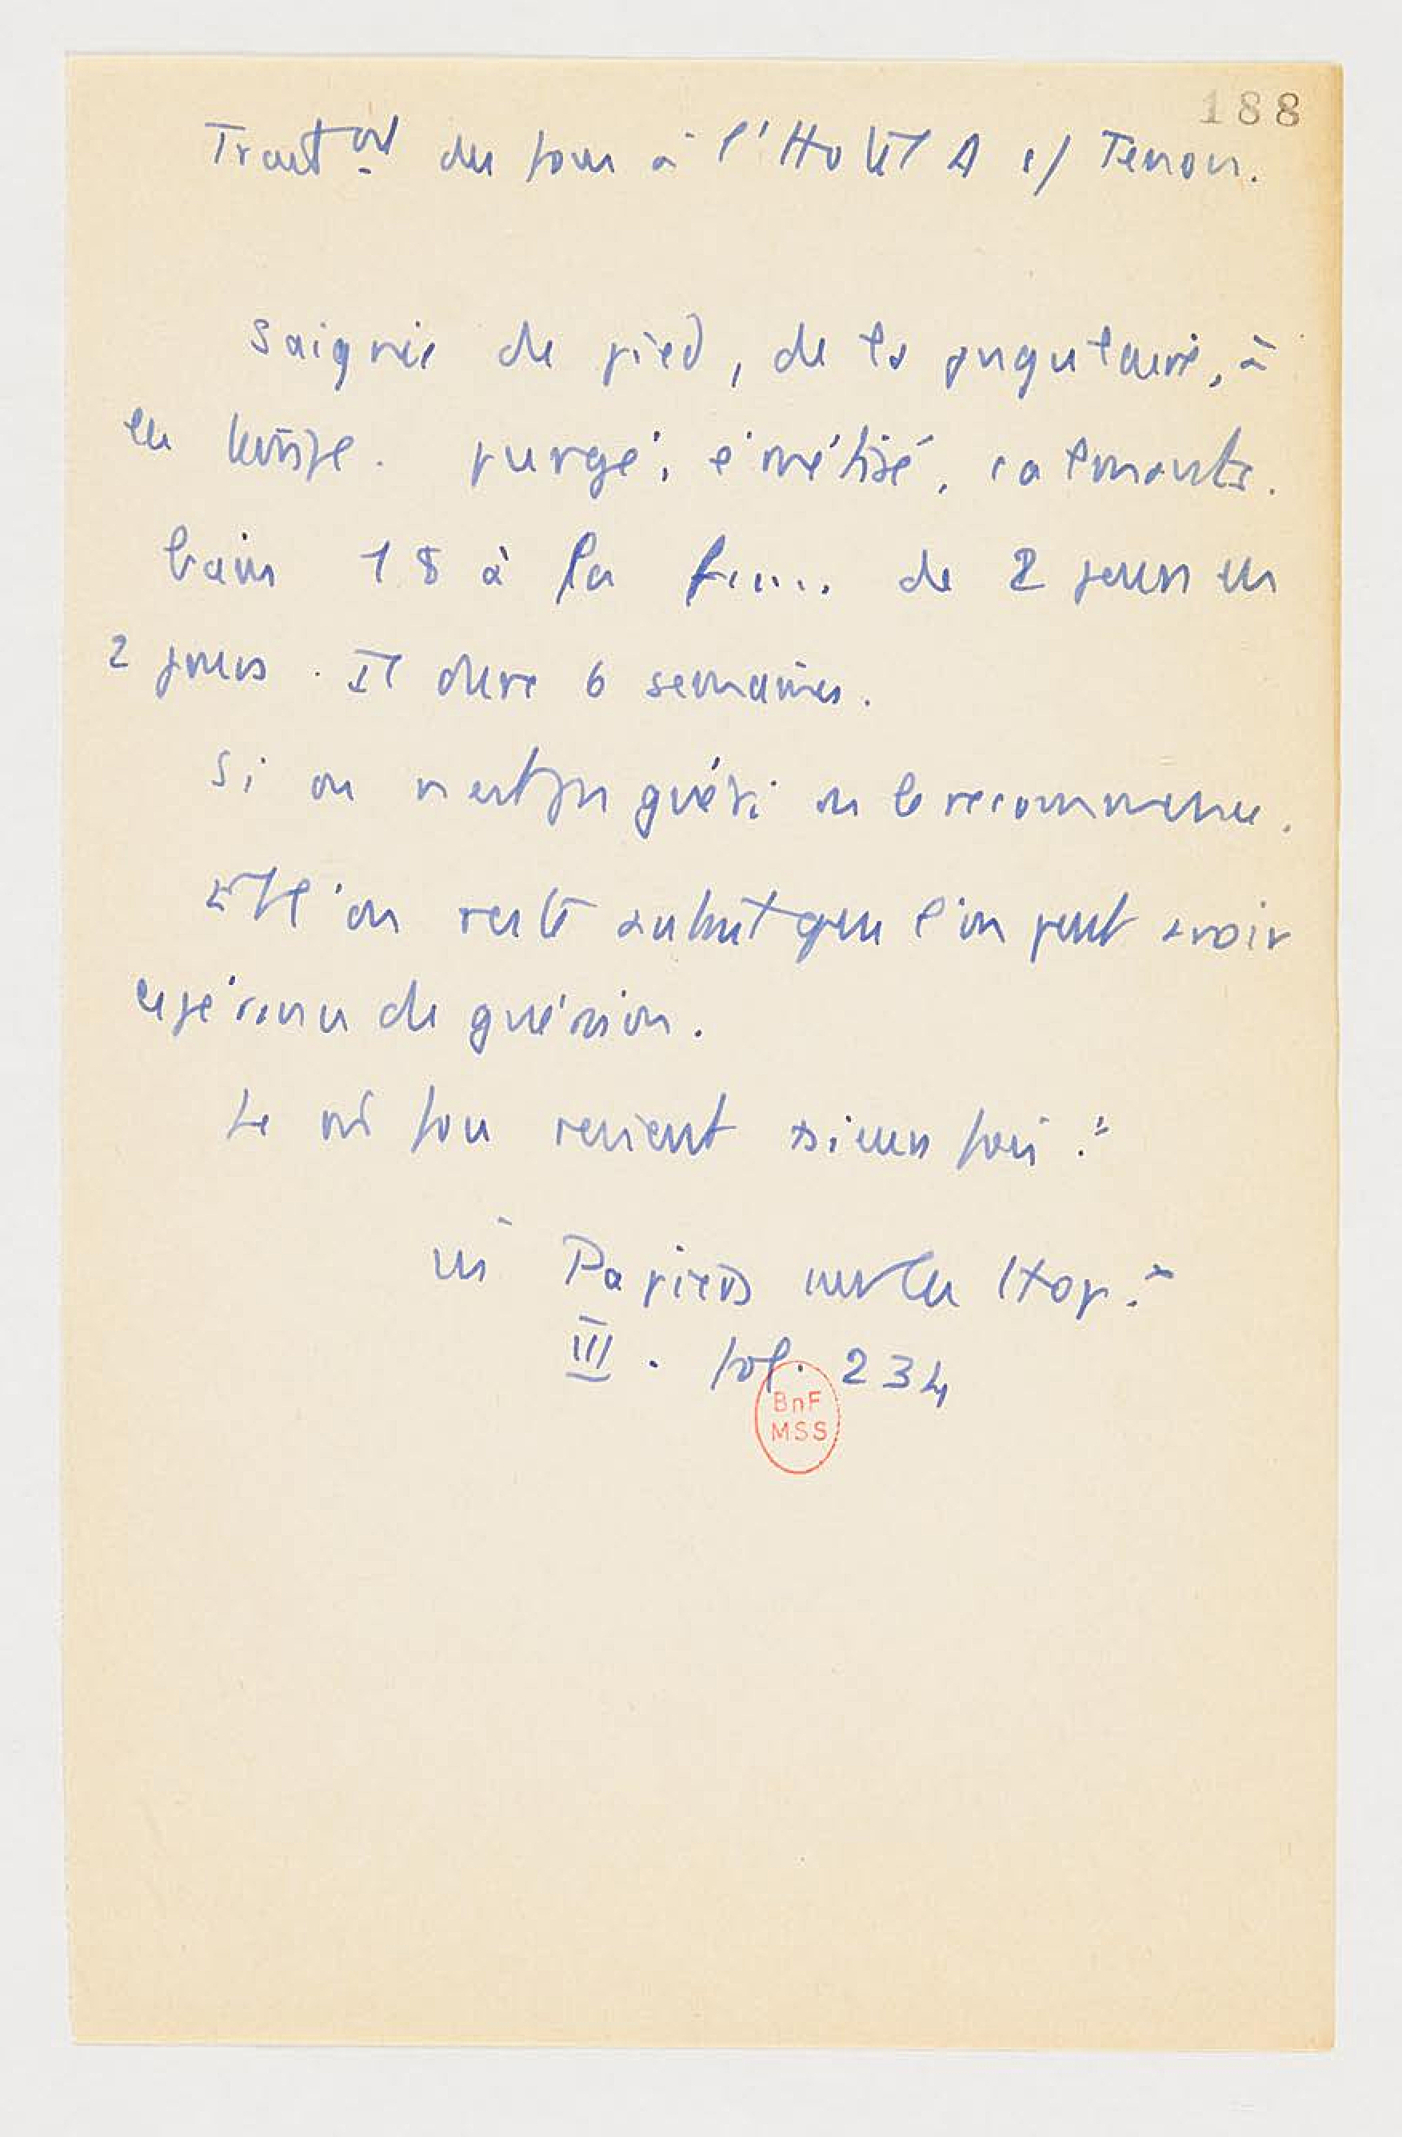 188
Trait nt des fous à l'Hotel D s/ Tenon.
Saignée du pied, de la jugulaire, à
la tempe. purgé, émétisé, calmants.
bain 18 à la f.... de 2 jours en
2 jours. Il dure 6 semaines.
Si on n'est pas guéri on le recommence.
Et l'on reste autant que l'on peut avoir
espérance de guérison.
Le fou revient fois."
in "Papiers sur les Hop."
III. fol. 234
BnF
MSS